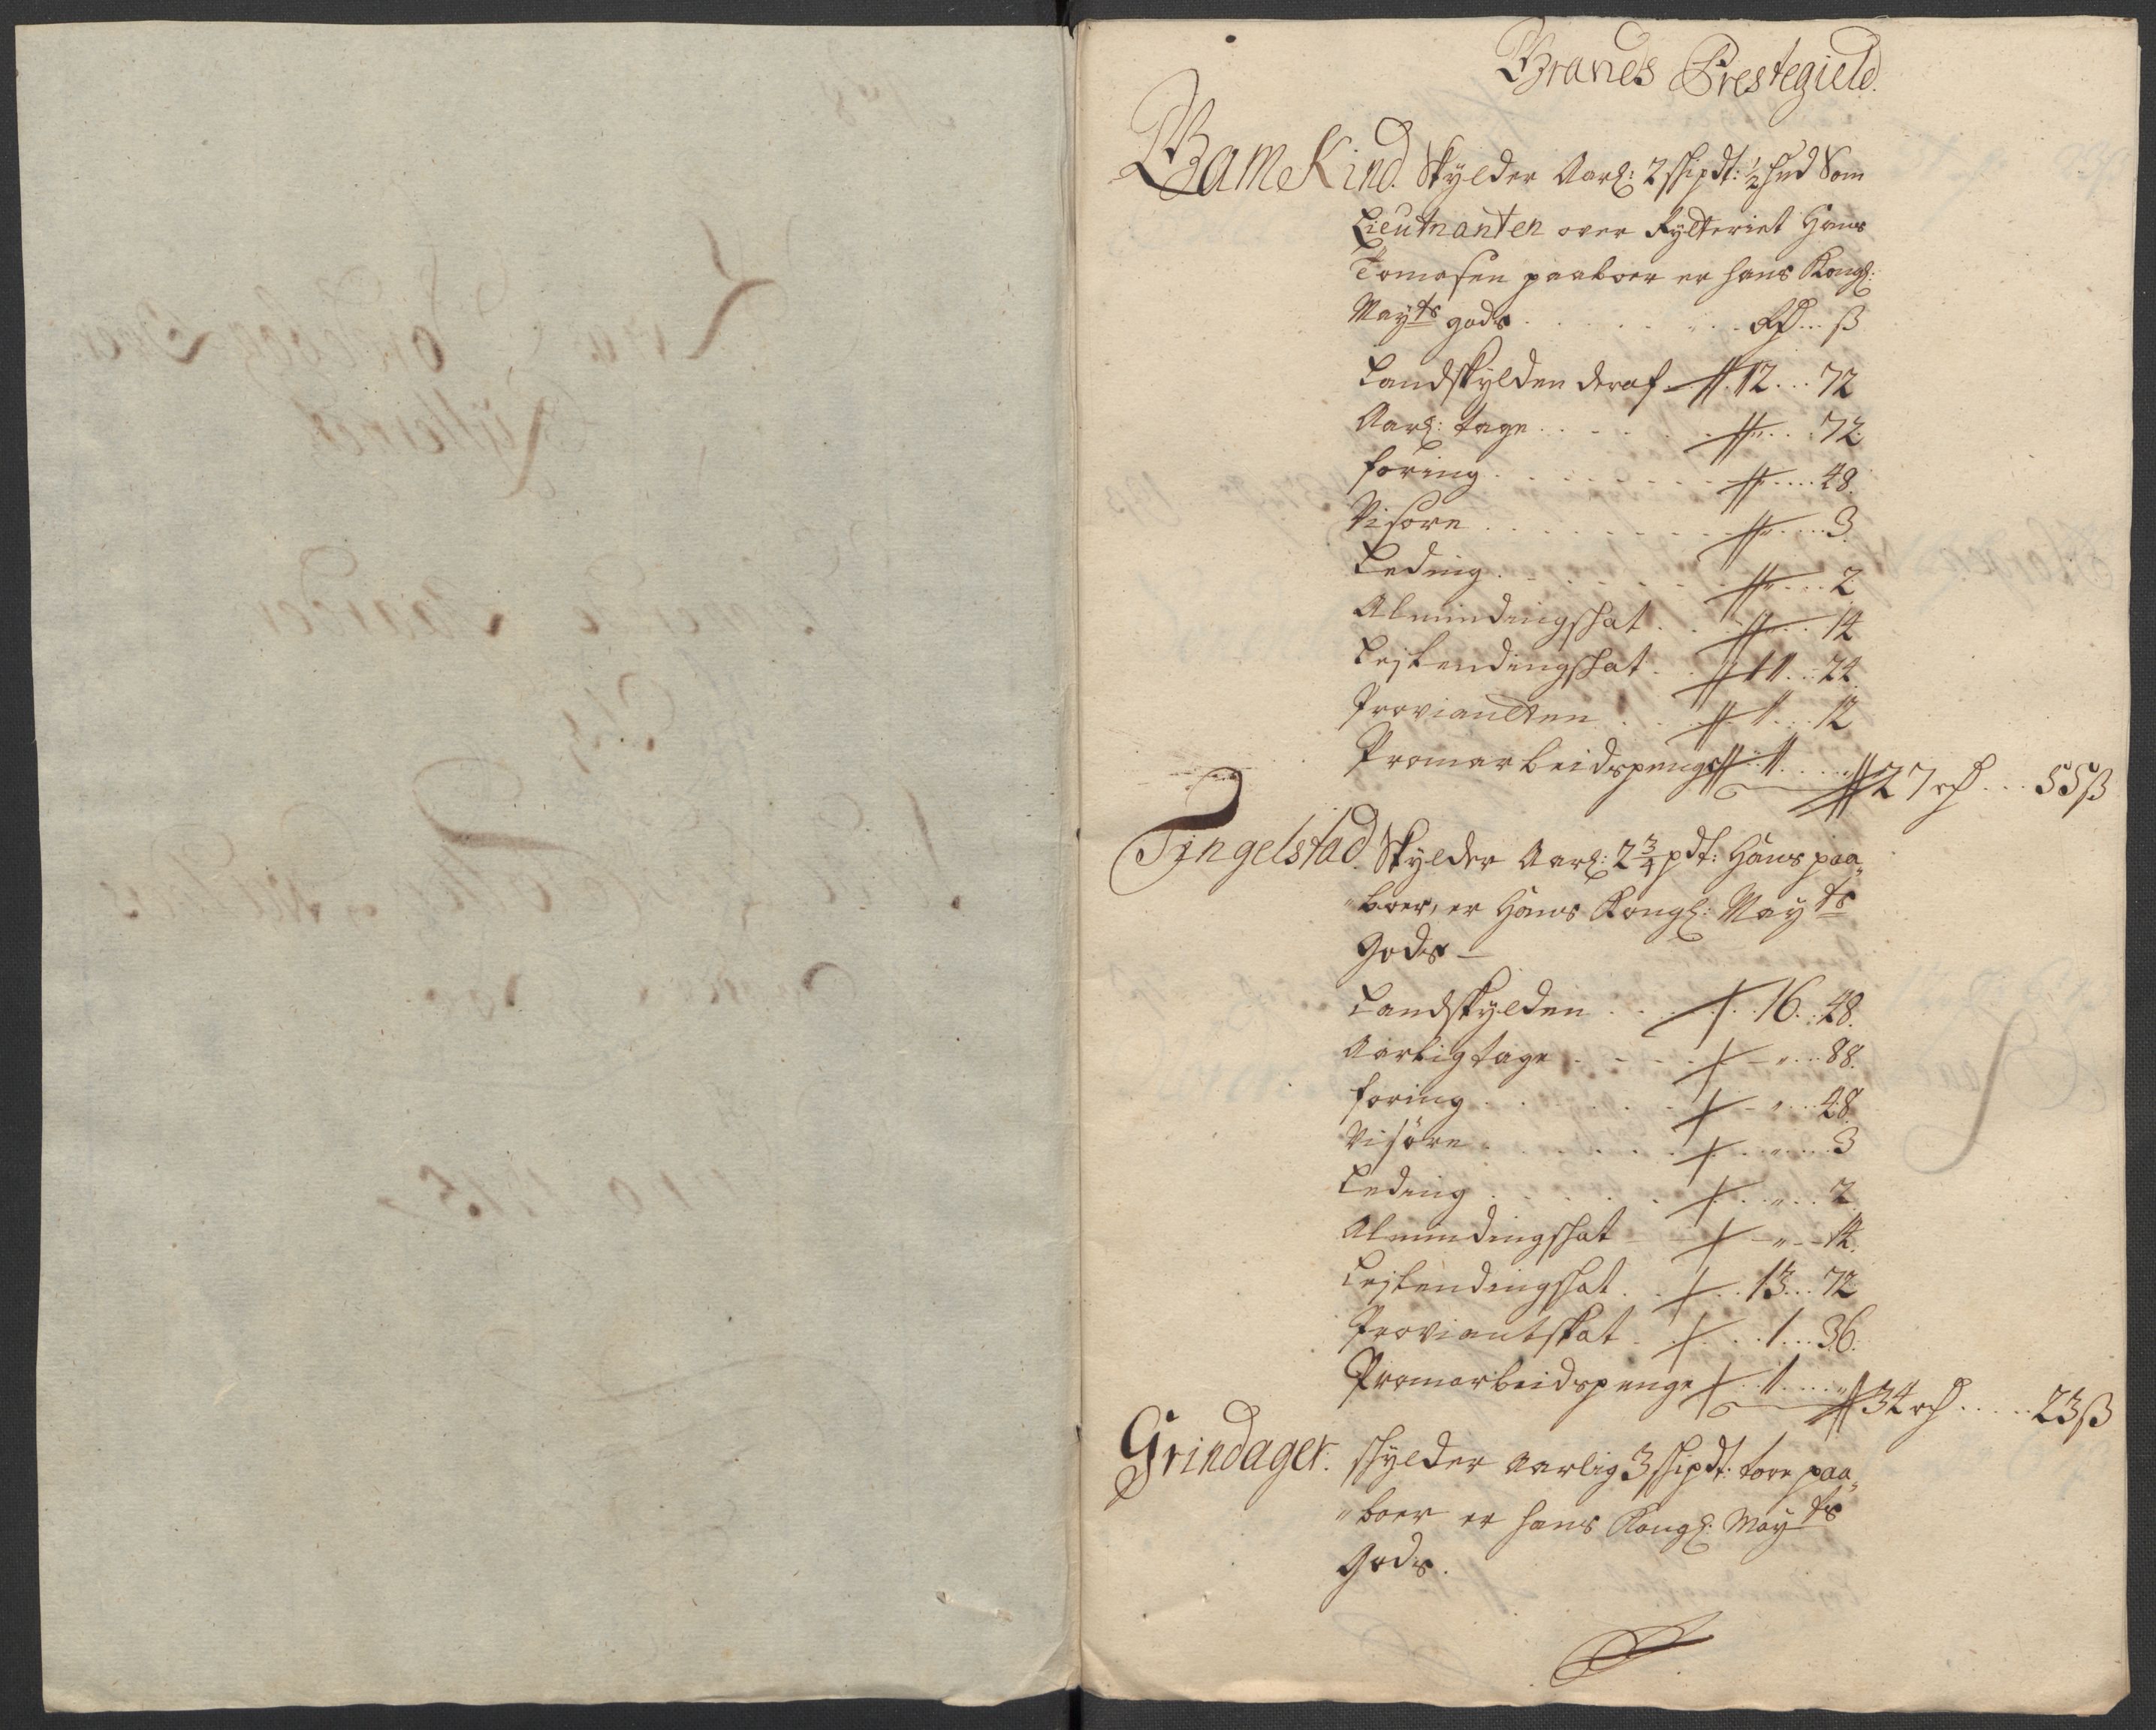 Brands Prestegield.
Bamekind. Skylder Aarl: 2 skipdt: ½ hud Som
Lieutnanten over Rytteriet Hans
Tomasen paaboer er hans Kongl:
Mayts gods . . . . . . Rd... ß
Landskylden deraf 12... 72
Aarl: tage . . . . . . " .. 72
foring . . . . . . . " .... 48.
Visøre . . . . . . . " .... 3.
Leding . . . . . . . " .... 2
Almindingskat . . . " ... 14
Lejlendingskat . . 11 .. 24
Provianten . . . 1 ... 12
Tromarbeidspenge 1 .... " 27 rd ... 55 ß
Tingelstad. Skylder Aarl: 2 3/4 pdt: Hans paa„
„boer, er Hans Kongl: Mayts
Gods —
Landskylden . . . . 16 .. 48.
Aarligtage . . . . . „ ... 88.
foring . . . . . . „ ... 48
Visøre . . . . . . „ .... 3
Leding . . . . . . „ ... 2
Almindingskat — „ — 14.
Lejlendingskat . . . 13 ... 72
Proviantskat . . . 1 ... 36.
Tromarbeidspenge . 1 .... „ 34 rd ..... 23 ß
Grindager. skylder Aarlig 3 skipdt: tore paa„
„boer er hans Kongl: Mayts
Gods.